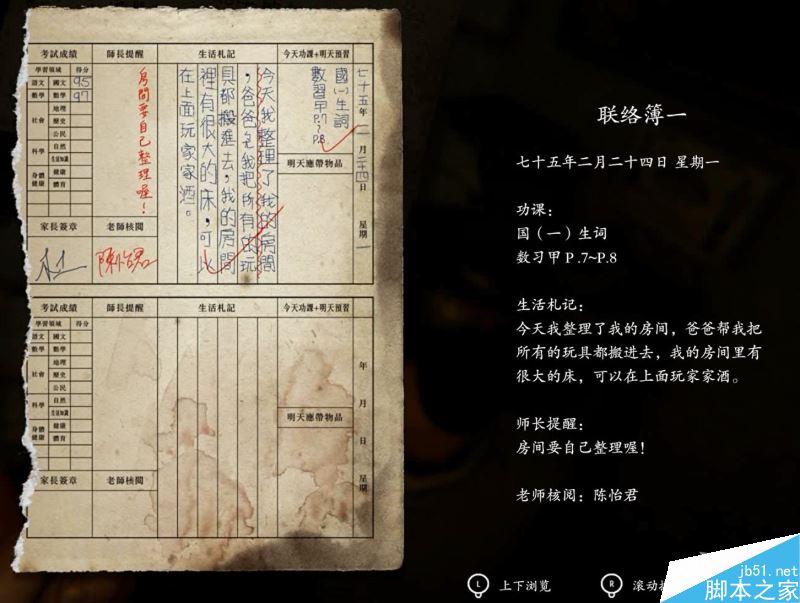 考試成績 師長提醒 生活札記 今天功課+明天預習
學習領域 得分
語文 國文 95
數學 數學 97
社會 地理
歷史
公民
科學 自然
生活知識
身體健康 健康
體育
房間要自己整理喔！
今天我整理了我的房間
，爸爸我把所有的玩
具都搬進去，我的房間
裡有很大的床，可以
在上面玩家家酒。
國(一)生詞
數習甲P.7~P.8
明天應帶物品
七十五年二月二十四日 星期一
家長簽章 老師核閱
陳怡君
考試成績 師長提醒 生活札記 今天功課+明天預習
學習領域 得分
語文 國文
數學 數學
社會 地理
歷史
公民
科學 自然
生活知識
身體健康 健康
體育
明天應帶物品
年 月 日 星期
家長簽章 老師核閱
联络簿一
七十五年二月二十四日 星期一
功课：
国（一）生词
数习甲 P .7~P.8
生活札记：
今天我整理了我的房间，爸爸帮我把
所有的玩具都搬进去，我的房间里有
很大的床，可以在上面玩家家酒。
师长提醒：
房间要自己整理喔！
老师核阅：陈怡君
L 上下浏览 R 滚动
jb51.net
脚本之家